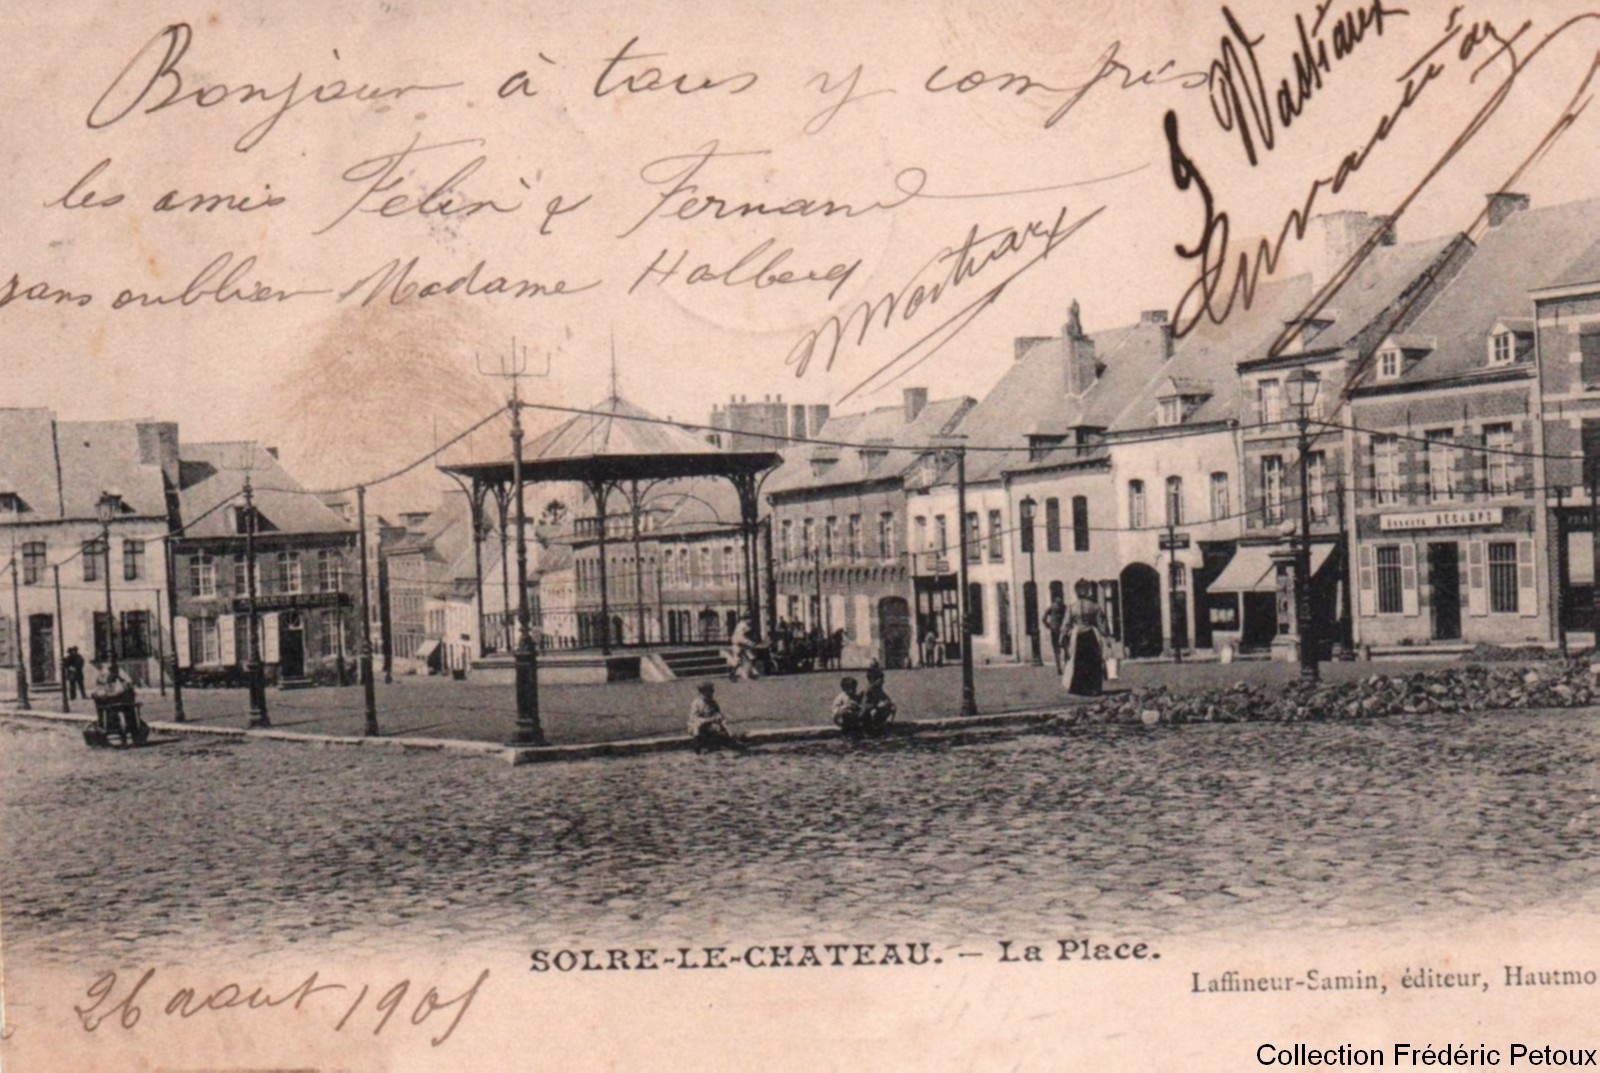 Bonjour à tous y compris
les amis Felix & Fernand
sans oublier Madame Halberq
Wastiaux
Wastiaux
DECAMPS
SOLRE-LE-CHATEAU. — La Place.
Laffineur-Samin, éditeur, Hautmo
26 aout 1905
Collection Frédéric Petoux